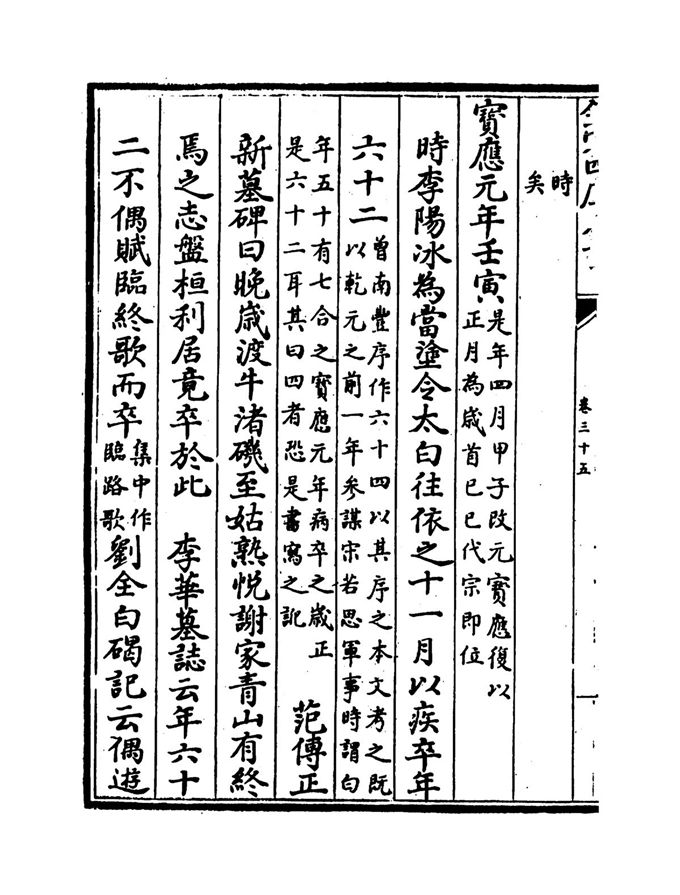 卷三十五
時
矣
寶應元年壬寅
是年四月甲子改元寶應復以
正月為歲首已巳代宗即位
時李陽冰為當塗令太白往依之十一月以疾卒年
六十二
曾南豐序作六十四以其序之本文考之既
以乾元之前一年參謀宋若思軍事時謂白
年五十有七合之寶應元年病卒之歲正
是六十二耳其曰四者恐是書寫之訛
范傳正
新墓碑曰晚歲渡牛渚磯至姑熟悅謝家青山有終
焉之志盤桓利居竟卒於此 李華墓誌云年六十
二不偶賦臨終歌而卒
集中作
臨路歌
劉全白碣記云偶遊